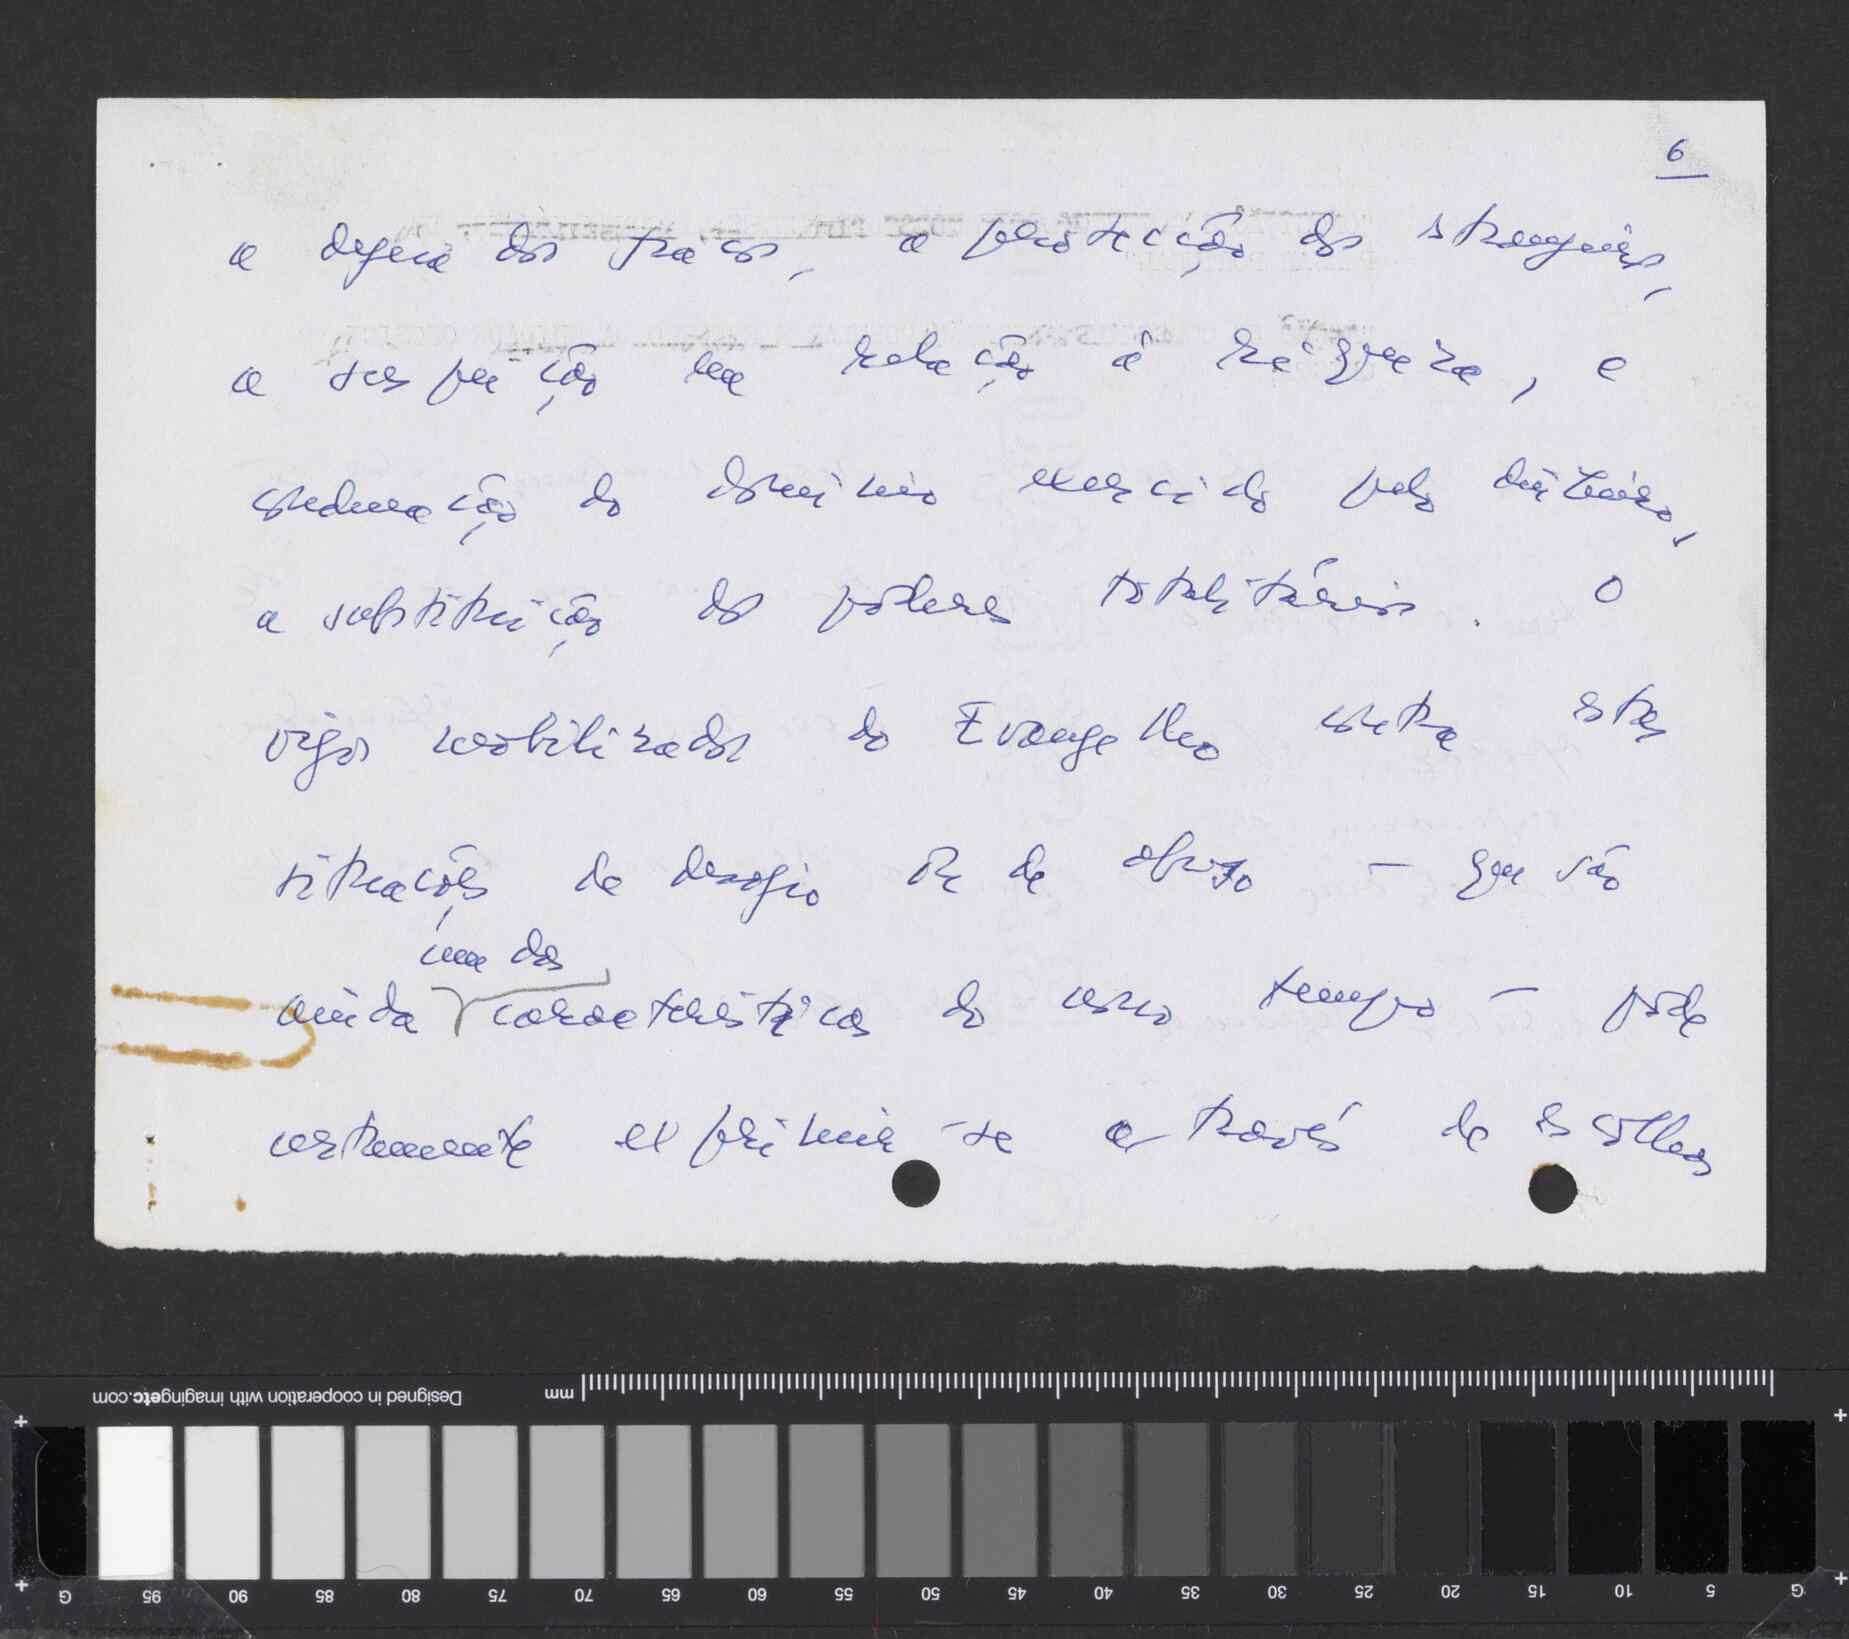 6
a defesa dos fracos, a protecção dos estrangeiros,
a suspeição na relação à riqueza, a
condenação do domínio exercido pelo dinheiro,
a substituição dos poderes totalitários. O
vigor mobilizador do Evangelho contra estas
situações de desafio ou de abuso – que são
uma das
ainda características do nosso tempo – pode
certamente exprimir-se através de escolhas
Designed in cooperation with imagingetc.com
mm
G 95 90 85 80 75 70 65 60 55 50 45 40 35 30 25 20 15 10 5 G